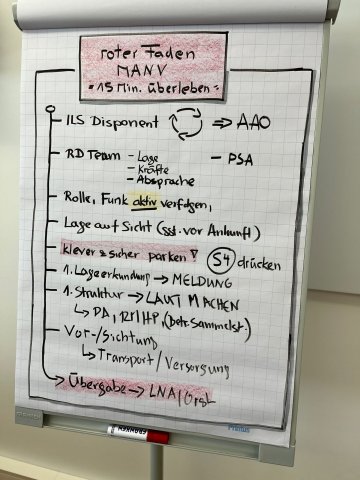 roter Faden
MANV
"15 Min. überleben"
ILS Disponent ⇒ AAO
RD Team - Lage - PSA
- Kräfte
- Absprache
Rolle, Funk aktiv verfolgen,
Lage auf Sicht (sst. vor Ankunft)
klever & sicher parken! S4 drücken
1. Lageerkundung → MELDUNG
1. Struktur → LAUT MACHEN
↳ PA, RMHP, (betr. Sammelst.)
Vor-/Sichtung
↳ Transport/Versorgung
Übergabe → LNA/OrgL